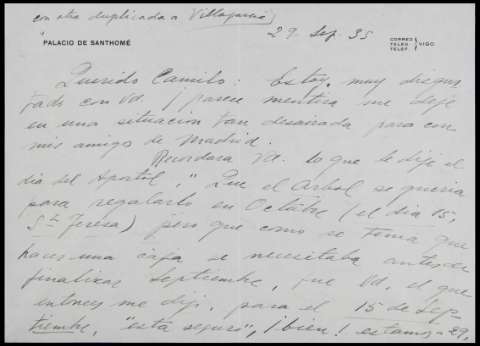 con otra duplicada a Villagarcía)
29. Sep. 35
PALACIO DE SANTHOMÉ
CORREO
TELEG.
TELEF.
VIGO
Querido Camilo: Estoy muy disgus
tado con Vd ¡parece mentira me deje
en una situacion tan desairada para con
mis amigos de Madrid.
Recordara Vd. lo que le dije el
dia del Apostol, "Que el Arbol se queria
para regalarlo en Octubre (el dia 15,
Sta Teresa) pero que como se tenia que
hacer una caja se necesitaba antes de
finalizar Septiembre, que Vd, el que
entonces me dijo, para el 15 de Sep-
tiembre, "esta seguro", ¡bien! estamos a 29,